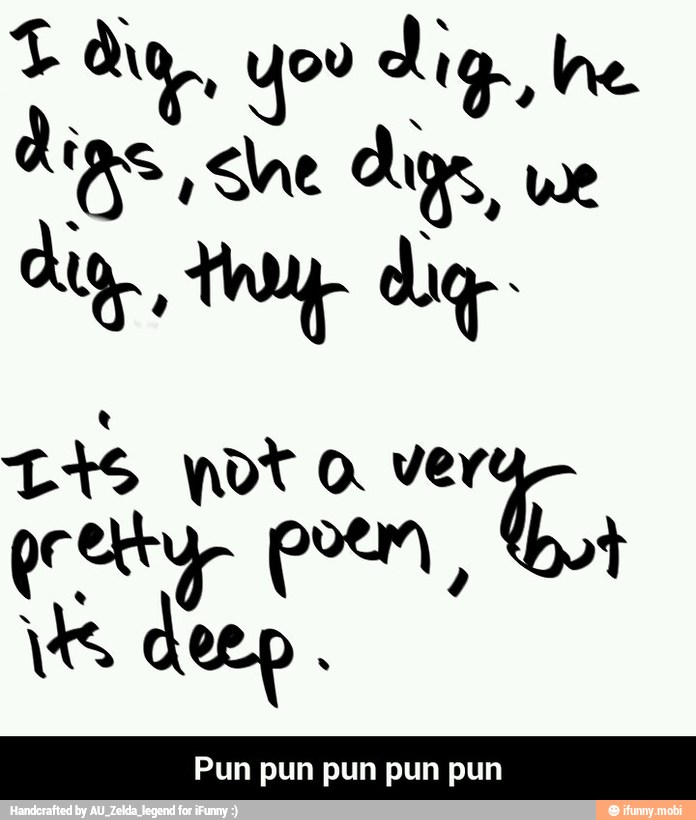 I dig, you dig, he
digs, she digs, we
dig, they dig.
It's not a very
pretty poem, but
it's deep.
Pun pun pun pun pun
Handcrafted by AU_Zelda_legend for iFunny :)
ifunny.mobi